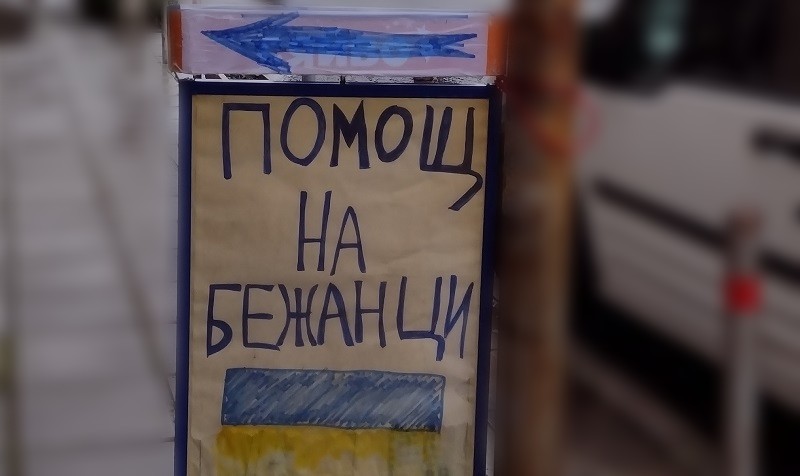 ПОМОЩ
НА
БЕЖАНЦИ